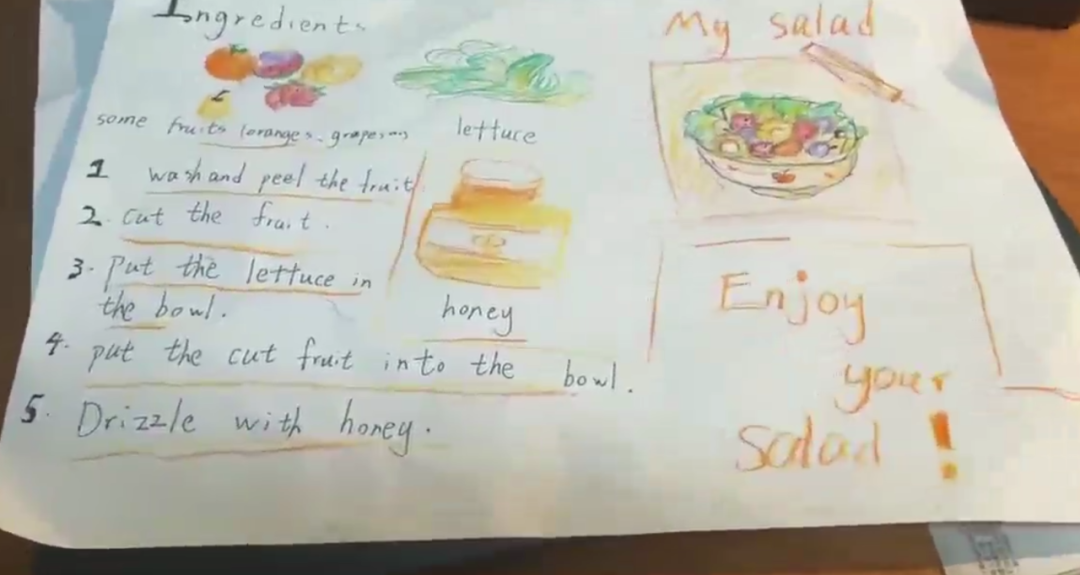 Ingredients
some fruits (oranges. grapes
lettuce
1 wash and peel the fruit
2. cut the fruit.
3. put the lettuce in
the bowl.
honey
4. put the cut fruit into the bowl.
5. Drizzle with honey.
My salad
Enjoy
your
salad!